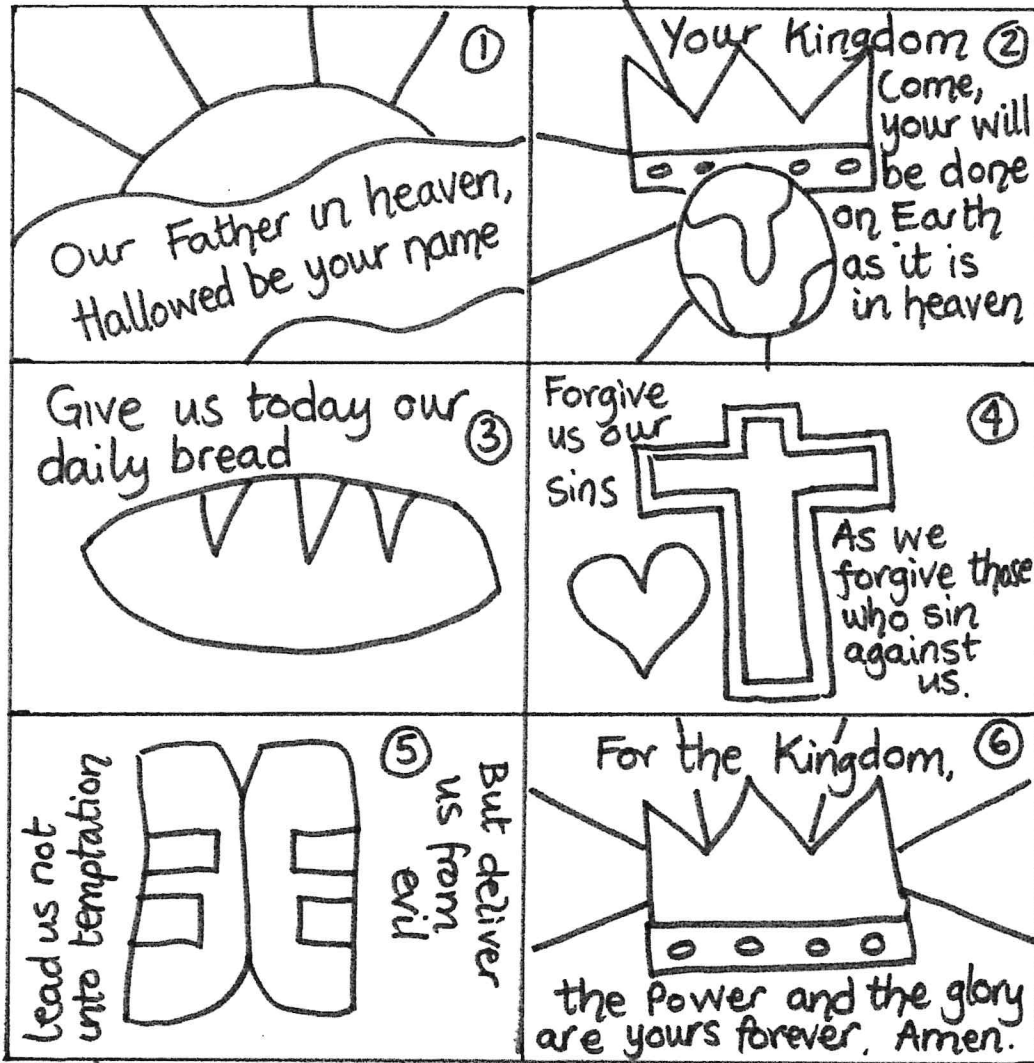 ①
Our Father in heaven,
Hallowed be your name
Your Kingdom ②
Come,
your will
be done
on Earth
as it is
in heaven
Give us today our
daily bread
③
Forgive
us our
sins
④
As we
forgive those
who sin
against
us.
lead us not
into temptation
⑤
But deliver
us from
evil
For the Kingdom, ⑥
the Power and the glory
are yours forever. Amen.